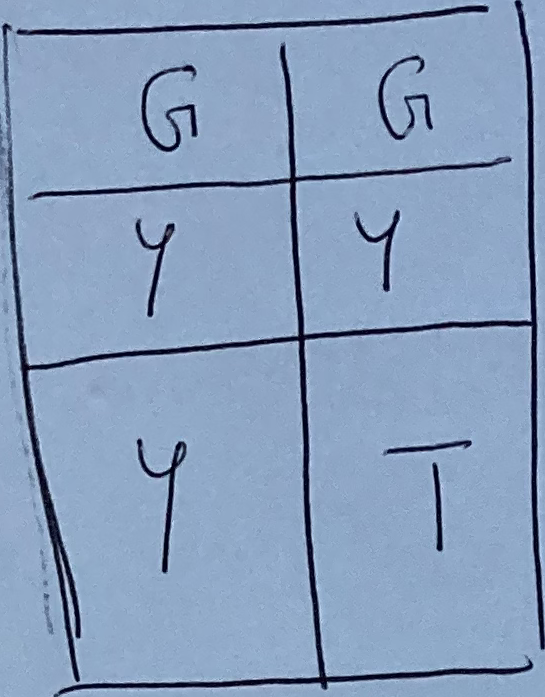 G G
Y Y
Y T